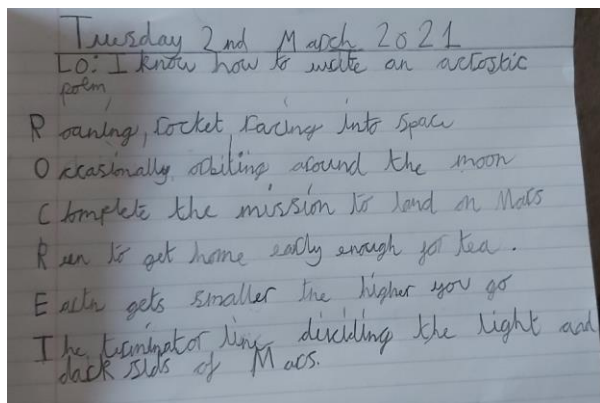 Tuesday 2nd March 2021
LO: I know how to write an acrostic
poem
Roaring, rocket, racing into space
Occasionally orbiting around the moon
Complete the mission to land on Mars
Run to get home early enough for tea.
Earth gets smaller the higher you go
The terminator line dividing the light and
dark sids of Mars.